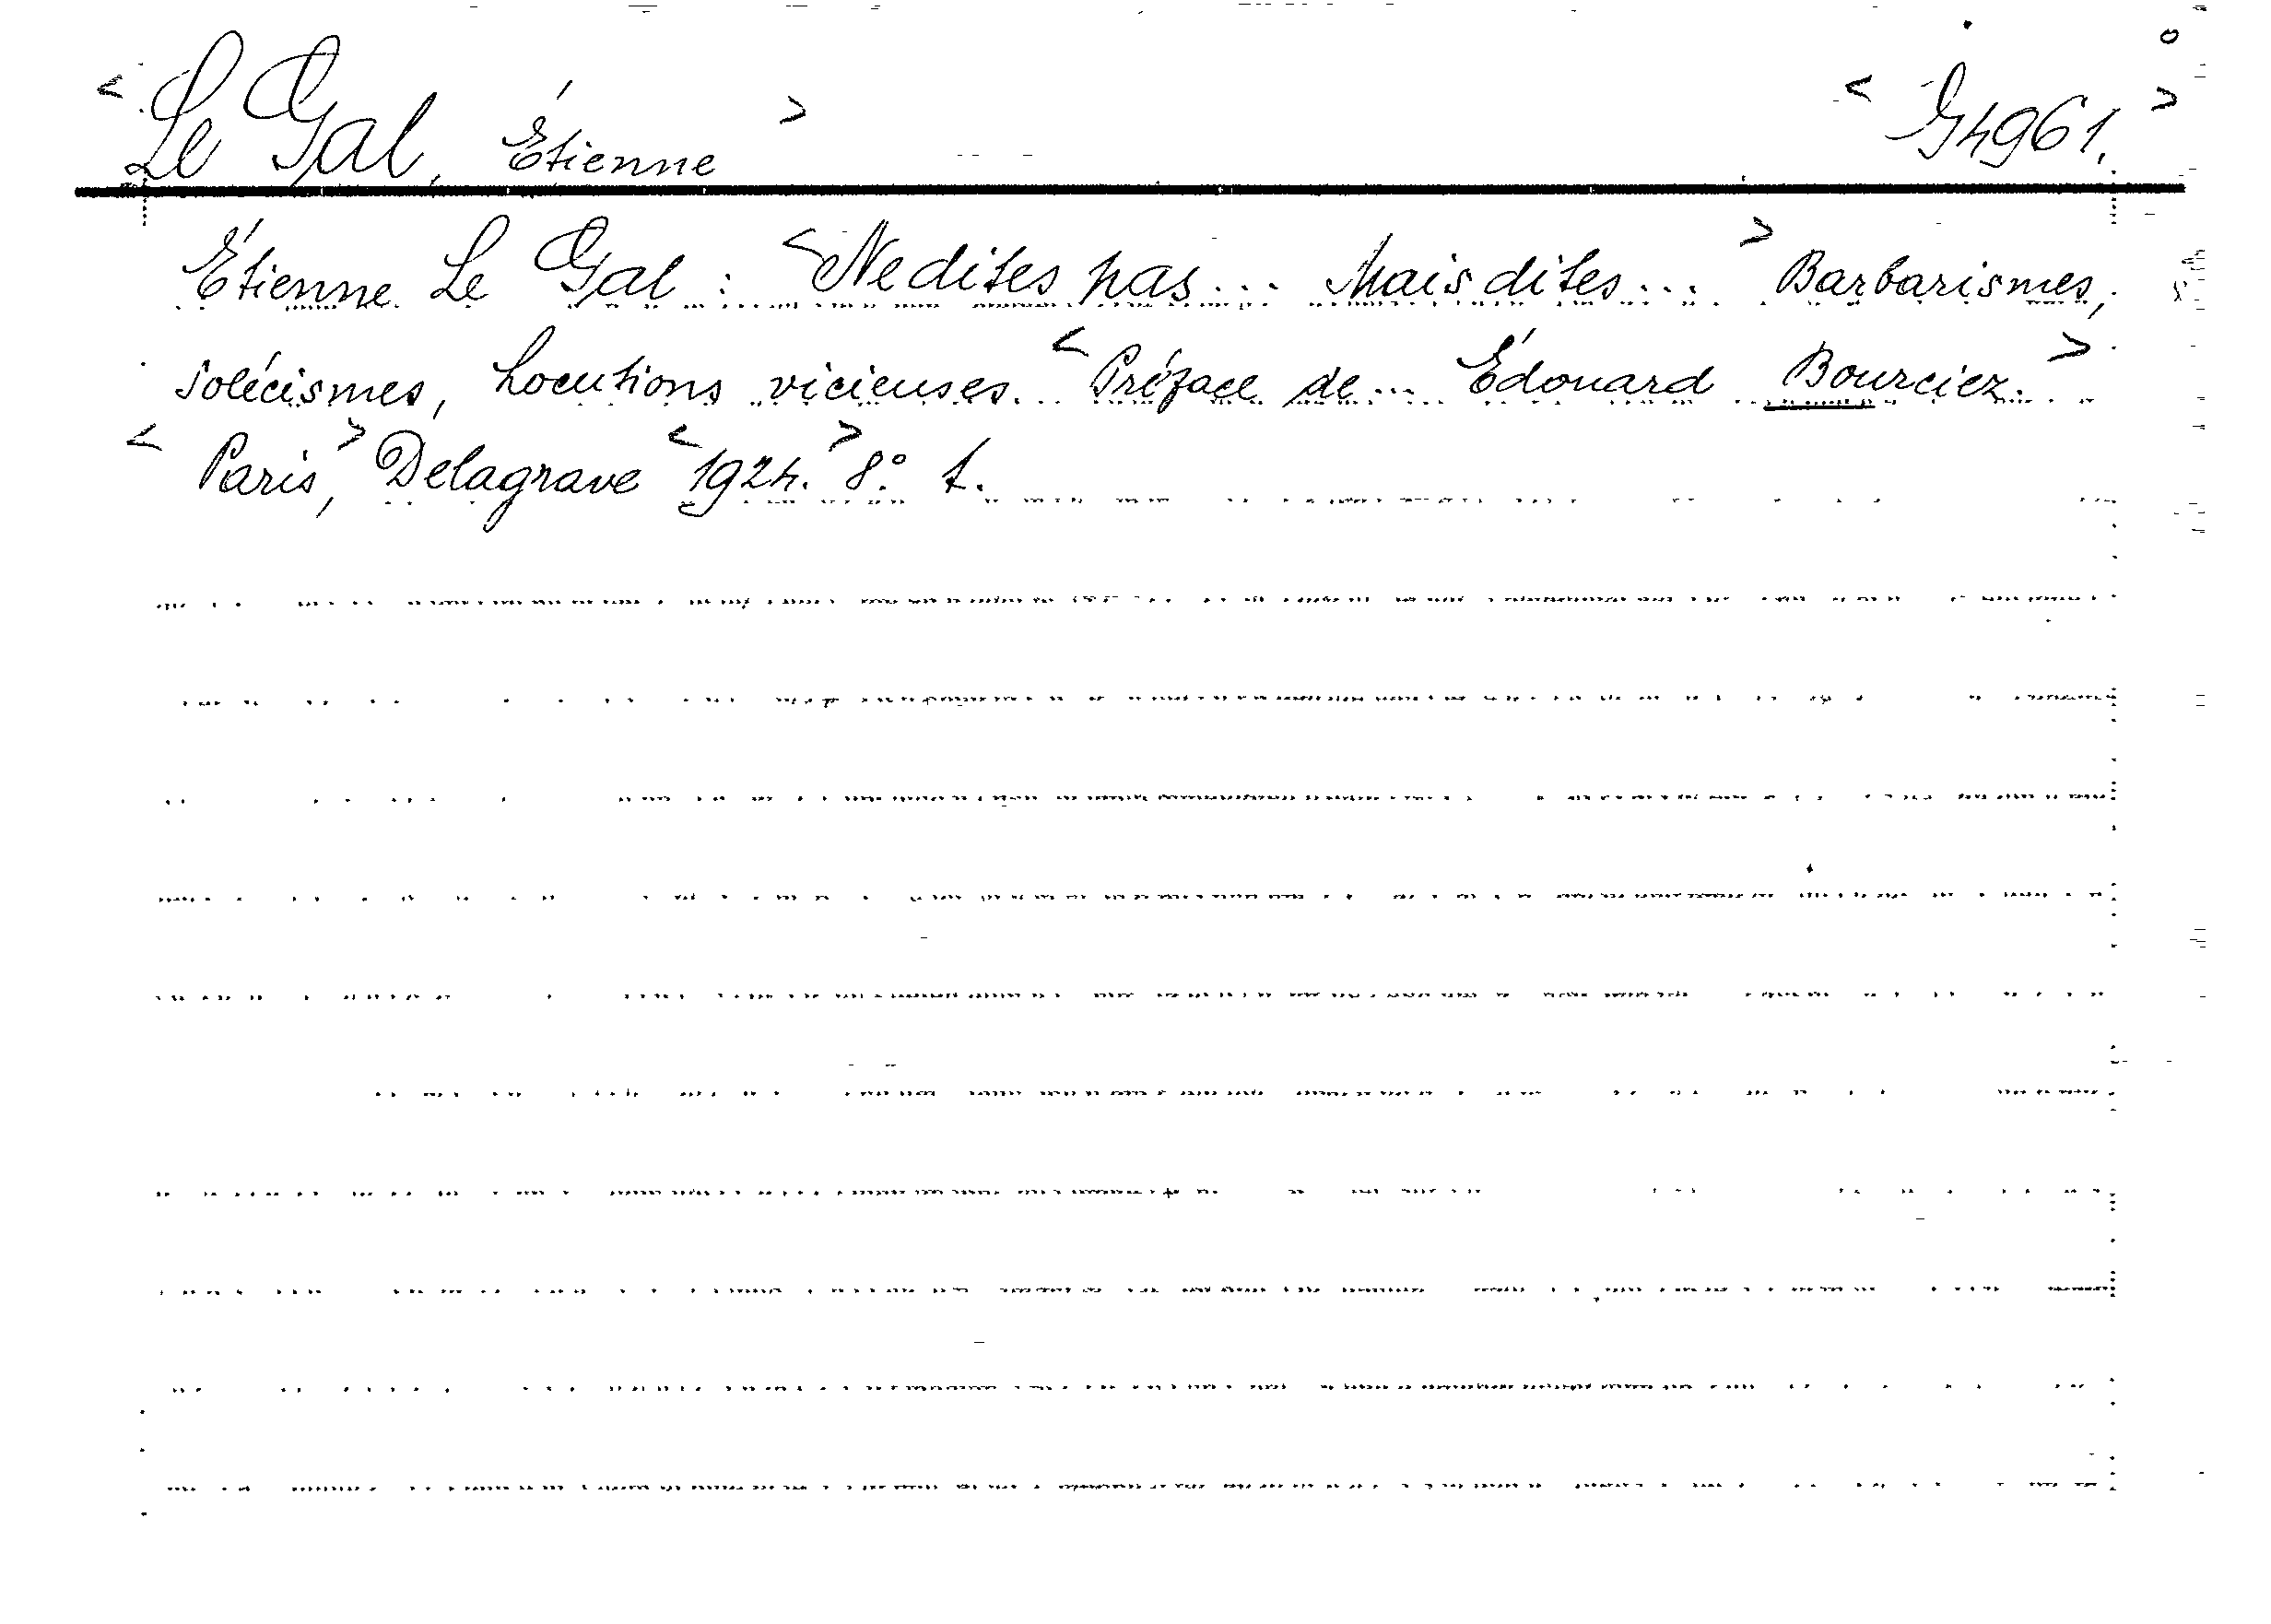 < Le Gal, Étienne > < G 4961. >
Étienne Le Gal : < Ne dites pas... Mais dites... > Barbarismes,
solécismes, Locutions vicieuses... < Préface de... Édouard Bourciez. >
< Paris, > Delagrave < 1924. > 8° t.